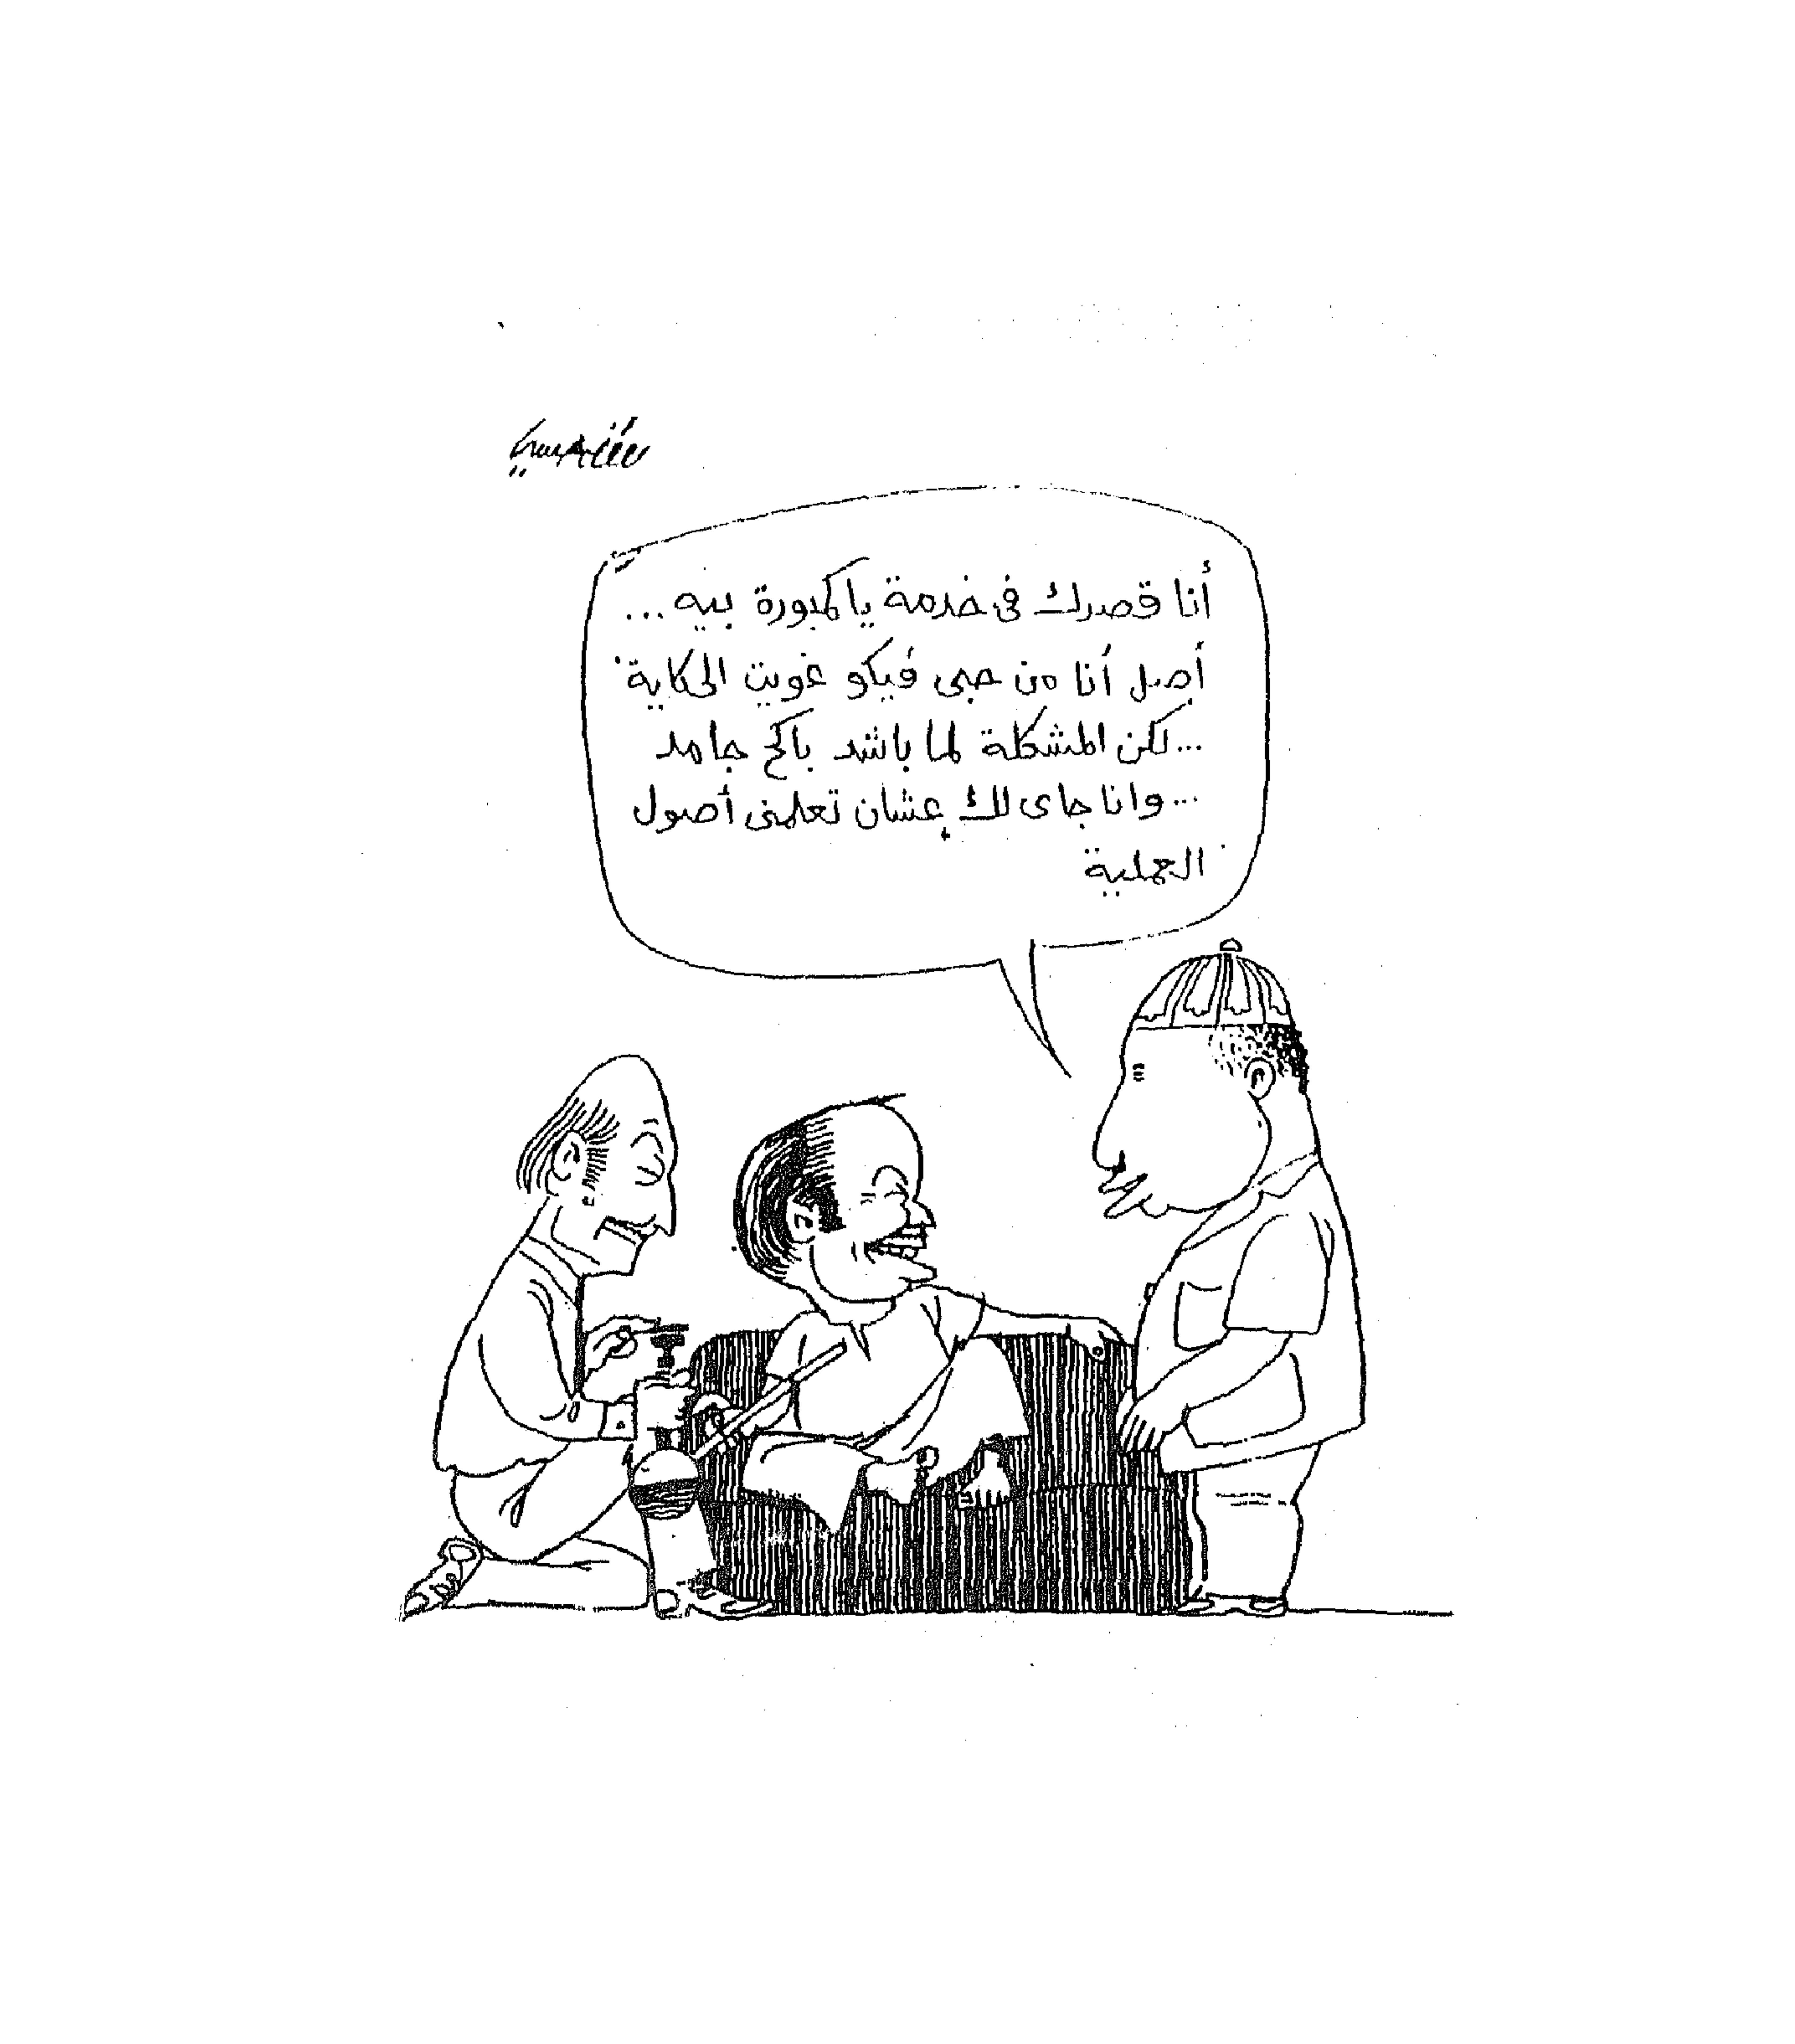 أنا قصدك فى خدمة يا كمبورة بيه...
أصل أنا من حبى فيكو غويت الحكاية
...لكن المشكلة لما باشد باكح جامد
...وانا جاى لك عشان تعلمنى أصول
العملية